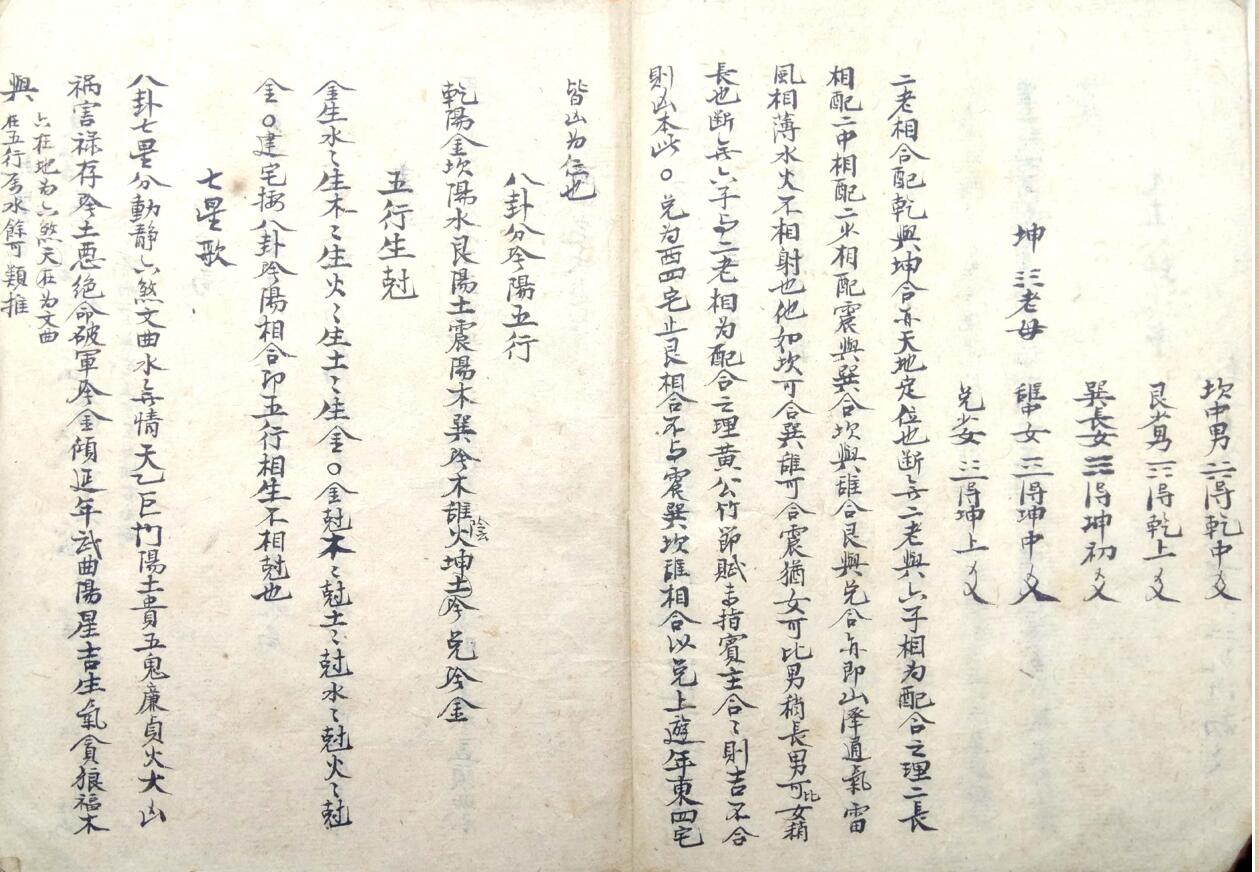 坎中男☵得乾中爻
艮少男☶得乾上爻
巽長女☴得坤初爻
坤☷老母 離中女☲得坤中爻
兑少女☱得坤上爻
二老相合配乾與坤合亦天地定位也断無二老與六子相為配合之理二長
相配二中相配二少相配震與巽合坎與離合艮與兑合亦即山澤通氣雷
風相薄水火不相射也他如坎可合巽離可合震猶女可比男稍長男可比女稍
長也断無六子与二老相為配合之理黄公竹節賦専指賓主合〻則吉不合
則凶本此○兑為西四宅止艮相合不与震巽坎離相合以兑上遊年東四宅
皆凶为位也
八卦分阴陽五行
乾陽金坎陽水艮陽土震陽木巽阴木離陰火坤土阴兑阴金
五行生尅
金生水〻生木〻生火〻生土〻生金○金尅木〻尅土〻尅水〻尅火〻尅
金○建宅按八卦阴陽相合即五行相生不相尅也
七星歌
八卦七星分動静六煞文曲水無情天乙巨门陽土貴五鬼廉貞火大凶
祸害禄存阴土悪絶命破軍阴金傾延年武曲陽星吉生氣貪狼福木
興 六在地为六煞天在为文曲
在五行为水餘可類推